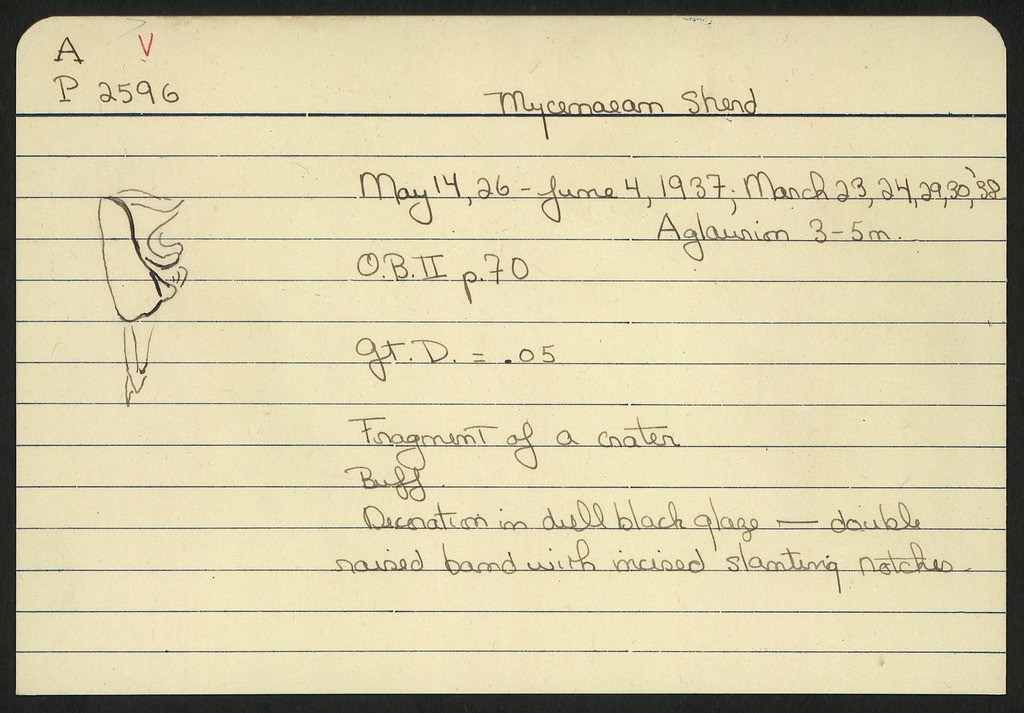 A V
P 2596
Mycenaean Sherd
May 14, 26 - June 4, 1937; March 23, 24, 29, 30, '38
Aglaurion 3-5m.
O.B. II p.70
gt. D. = .05
Fragment of a crater
Buff
Decoration in dull black glaze — double
raised band with incised slanting notches.